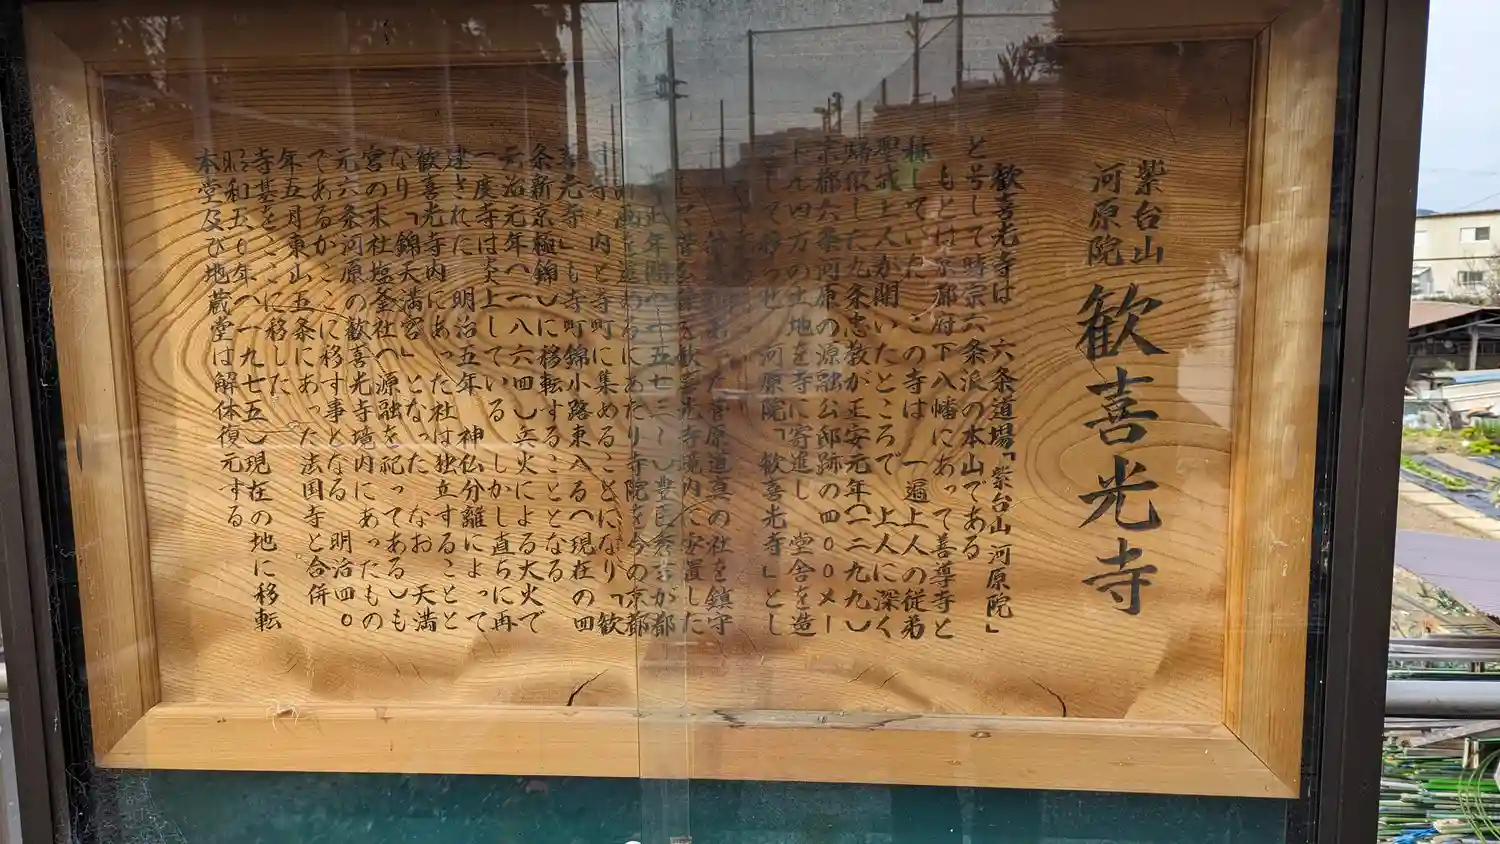 紫台山
河原院
歓喜光寺
歓喜光寺は 六条道場「紫台山河原院」
と号して時宗六条派の本山である
もとは京都府下八幡にあって善導寺と
称していた この寺は 一遍上人の従弟
聖戒上人が開いたところで 上人に深く
帰依した九条忠教が正安元年(一二九九)
京都六条河原の源融公邸跡の四〇〇メー
四方の土地を寺に寄進し 堂舎を造
して移らせ 河原院「歓喜光寺」とし
菅原道真の社を鎮守
歓喜光寺境内に安置した
豊臣秀吉が都
にあたり寺院を今の京都
内と寺町に集めることになり「歓
喜光寺」も寺町錦小路東入る(現在の四
条新京極錦)に移転することとなる
元治元年(一八六四)兵火による大火で
一度寺は炎上している しかし直ちに再
建された 明治五年 神仏分離によって
歓喜光寺内にあった社は独立することと
なり「錦天満宮」となった なお 天満
宮の末社塩釜社(源融を祀ってある)も
元六条河原の歓喜光寺境内にあったもの
であるがここに移す事となる 明治四〇
年五月東山五条にあった法国寺と合併
寺基をここに移した
昭和五〇年(一九七五)現在の地に移転
本堂及び地蔵堂は解体復元する